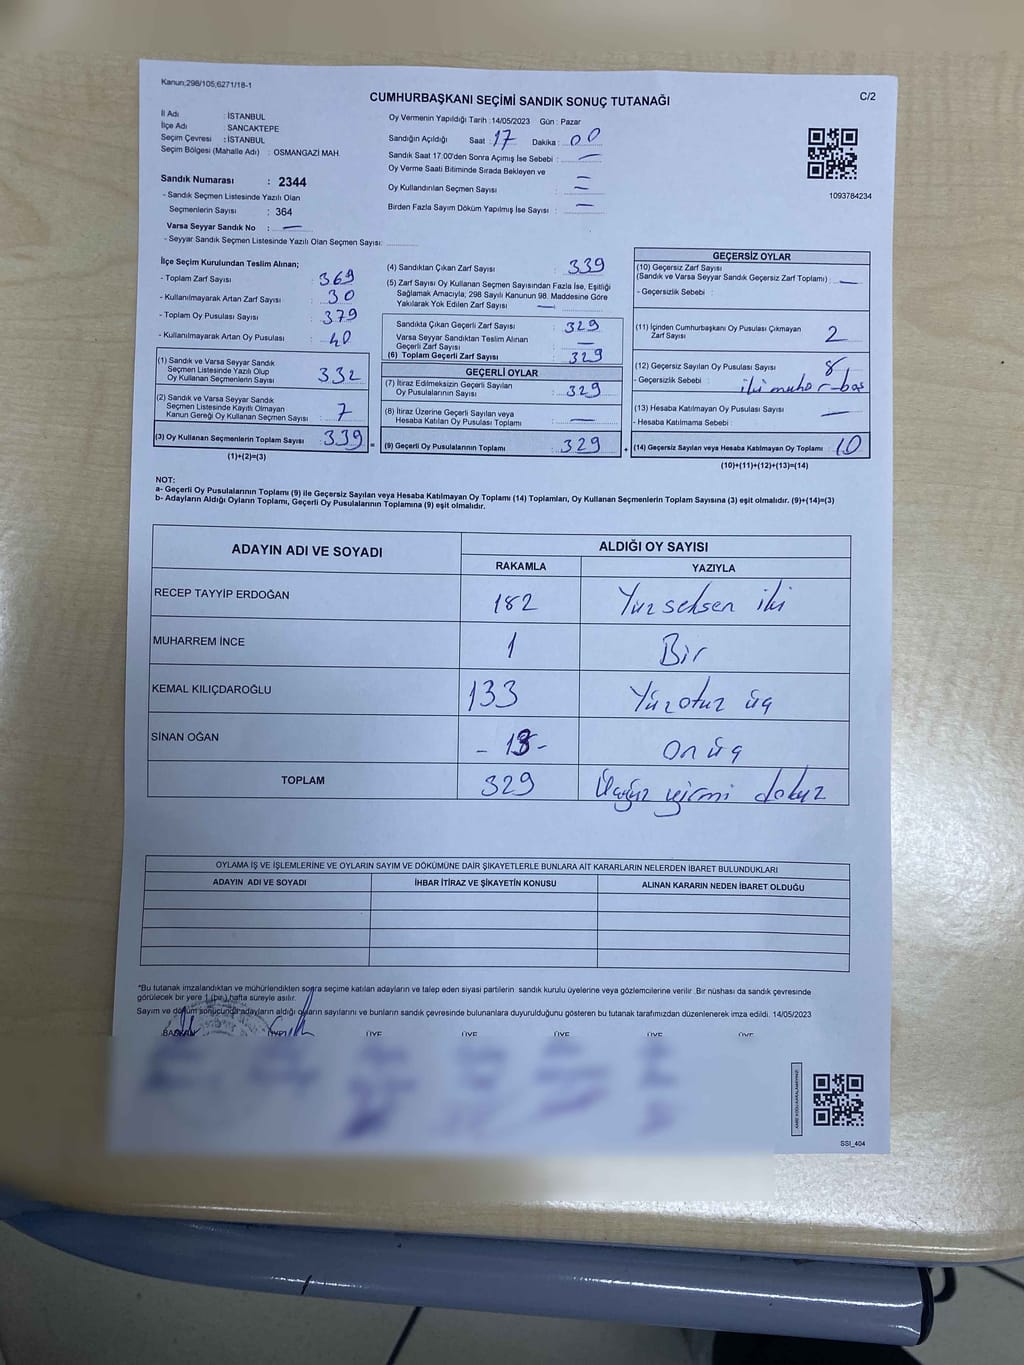 Kanun;298/105;6271/18-1
C/2
CUMHURBAŞKANI SEÇİMİ SANDIK SONUÇ TUTANAĞI
İl Adı : İSTANBUL
İlçe Adı : SANCAKTEPE
Seçim Çevresi : İSTANBUL
Seçim Bölgesi (Mahalle Adı) : OSMANGAZİ MAH.
Sandık Numarası : 2344
- Sandık Seçmen Listesinde Yazılı Olan
Seçmenlerin Sayısı : 364
Varsa Seyyar Sandık No : —
- Seyyar Sandık Seçmen Listesinde Yazılı Olan Seçmen Sayısı:
Oy Vermenin Yapıldığı Tarih :14/05/2023 Gün : Pazar
Sandığın Açıldığı Saat : 17 Dakika : 00
Sandık Saat 17:00'den Sonra Açımış İse Sebebi : —
Oy Verme Saati Bitiminde Sırada Bekleyen ve —
Oy Kullandırılan Seçmen Sayısı : —
Birden Fazla Sayım Döküm Yapılmış İse Sayısı : —
1093784234
İlçe Seçim Kurulundan Teslim Alınan;
- Toplam Zarf Sayısı : 369
- Kullanılmayarak Artan Zarf Sayısı : 30
- Toplam Oy Pusulası Sayısı : 379
- Kullanılmayarak Artan Oy Pusulası : 40
(1) Sandık ve Varsa Seyyar Sandık
Seçmen Listesinde Yazılı Olup
Oy Kullanan Seçmenlerin Sayısı : 332
(2) Sandık ve Varsa Seyyar Sandık
Seçmen Listesinde Kayıtlı Olmayan
Kanun Gereği Oy Kullanan Seçmen Sayısı : 7
(3) Oy Kullanan Seçmenlerin Toplam Sayısı : 339 =
(1)+(2)=(3)
(4) Sandıktan Çıkan Zarf Sayısı : 339
(5) Zarf Sayısı Oy Kullanan Seçmen Sayısından Fazla İse, Eşitliği
Sağlamak Amacıyla; 298 Sayılı Kanunun 98. Maddesine Göre
Yakılarak Yok Edilen Zarf Sayısı : —
Sandıkta Çıkan Geçerli Zarf Sayısı : 329
Varsa Seyyar Sandıktan Teslim Alınan
Geçerli Zarf Sayısı : —
(6) Toplam Geçerli Zarf Sayısı : 329
GEÇERLİ OYLAR
(7) İtiraz Edilmeksizin Geçerli Sayılan
Oy Pusulalarının Sayısı : 329
(8) İtiraz Üzerine Geçerli Sayılan veya
Hesaba Katılan Oy Pusulası Toplamı : —
(9) Geçerli Oy Pusulalarının Toplamı : 329 +
GEÇERSİZ OYLAR
(10) Geçersiz Zarf Sayısı
(Sandık ve Varsa Seyyar Sandık Geçersiz Zarf Toplamı) : —
- Geçersizlik Sebebi :
(11) İçinden Cumhurbaşkanı Oy Pusulası Çıkmayan
Zarf Sayısı : 2
(12) Geçersiz Sayılan Oy Pusulası Sayısı : 8
- Geçersizlik Sebebi : iki
(13) Hesaba Katılmayan Oy Pusulası Sayısı : —
- Hesaba Katılmama Sebebi :
(14) Geçersiz Sayılan veya Hesaba Katılmayan Oy Toplamı : 10
(10)+(11)+(12)+(13)=(14)
NOT:
a- Geçerli Oy Pusulalarının Toplamı (9) ile Geçersiz Sayılan veya Hesaba Katılmayan Oy Toplamı (14) Toplamları, Oy Kullanan Seçmenlerin Toplam Sayısına (3) eşit olmalıdır. (9)+(14)=(3)
b- Adayların Aldığı Oyların Toplamı, Geçerli Oy Pusulalarının Toplamına (9) eşit olmalıdır.
ADAYIN ADI VE SOYADI
ALDIĞI OY SAYISI
RAKAMLA YAZIYLA
RECEP TAYYİP ERDOĞAN 182 Yüzseksen iki
MUHARREM İNCE 1 Bir
KEMAL KILIÇDAROĞLU 133 Yüzotuz üç
SİNAN OĞAN - 13 - On üç
TOPLAM 329 Üçyüz yirmi dokuz
OYLAMA İŞ VE İŞLEMLERİNE VE OYLARIN SAYIM VE DÖKÜMÜNE DAİR ŞİKAYETLERLE BUNLARA AİT KARARLARIN NELERDEN İBARET BULUNDUKLARI
ADAYIN ADI VE SOYADI İHBAR İTİRAZ VE ŞİKAYETİN KONUSU ALINAN KARARIN NEDEN İBARET OLDUĞU
*Bu tutanak imzalandıktan ve mühürlendikten sonra seçime katılan adayların ve talep eden siyasi partilerin sandık kurulu üyelerine veya gözlemcilerine verilir .Bir nüshası da sandık çevresinde
görülecek bir yere 1 (bir) hafta süreyle asılır.
Sayım ve döküm sonucunda adayların aldığı oyların sayılarını ve bunların sandık çevresinde bulunanlara duyurulduğunu gösteren bu tutanak tarafımızdan düzenlenerek imza edildi. 14/05/2023
BAŞKAN ÜYE ÜYE ÜYE ÜYE ÜYE ÜYE
SSI_404